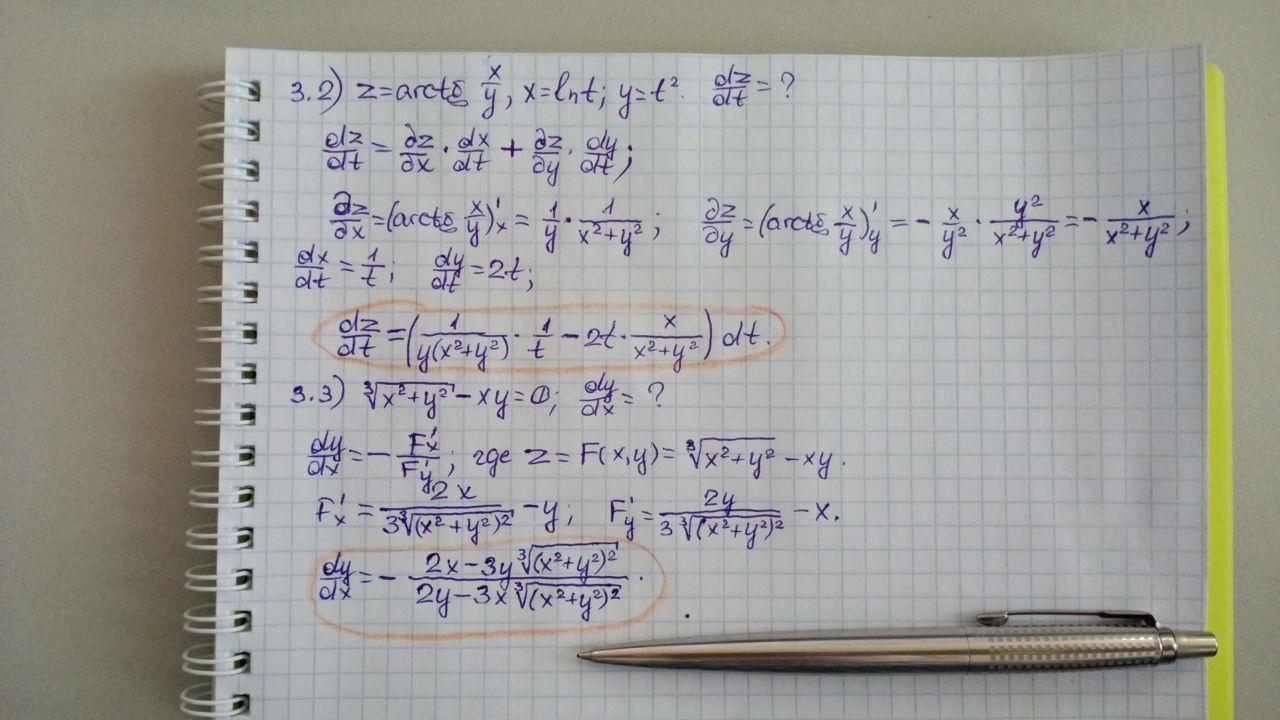 3.2) z=arctg x/y, x=lnt; y=t². dz/dt=?
dz/dt=∂z/∂x·dx/dt+∂z/∂y·dy/dt;
∂z/∂x=(arctg x/y)'ₓ=1/y·1/(x²+y²); ∂z/∂y=(arctg x/y)'ᵧ=-x/y²·y²/(x²+y²)=-x/(x²+y²);
dx/dt=1/t; dy/dt=2t;
dz/dt=(1/(y(x²+y²))·1/t-2t·x/(x²+y²))dt.
3.3) ∛(x²+y²)-xy=0; dy/dx=?
dy/dx=-F'ₓ/F'ᵧ; где z=F(x,y)=∛(x²+y²)-xy.
F'ₓ=2x/(3∛((x²+y²)²))-y; F'ᵧ=2y/(3∛((x²+y²)²))-x.
dy/dx=-(2x-3y∛((x²+y²)²))/(2y-3x∛((x²+y²)²)).